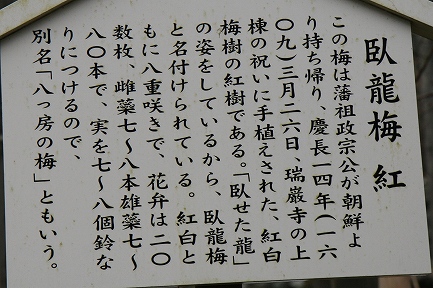 臥龍梅 紅
この梅は藩祖政宗公が朝鮮よ
り持ち帰り、慶長一四年(一六
〇九)三月二六日、瑞巌寺の上
棟の祝いに手植えされた、紅白
梅樹の紅樹である。「臥せた龍」
の姿をしているから、臥龍梅
と名付けられている。紅白と
もに八重咲きで、花弁は二〇
数枚、雌蘂七〜八本雄蘂七〜
八〇本で、実を七〜八個鈴な
りにつけるので、
別名「八っ房の梅」ともいう。